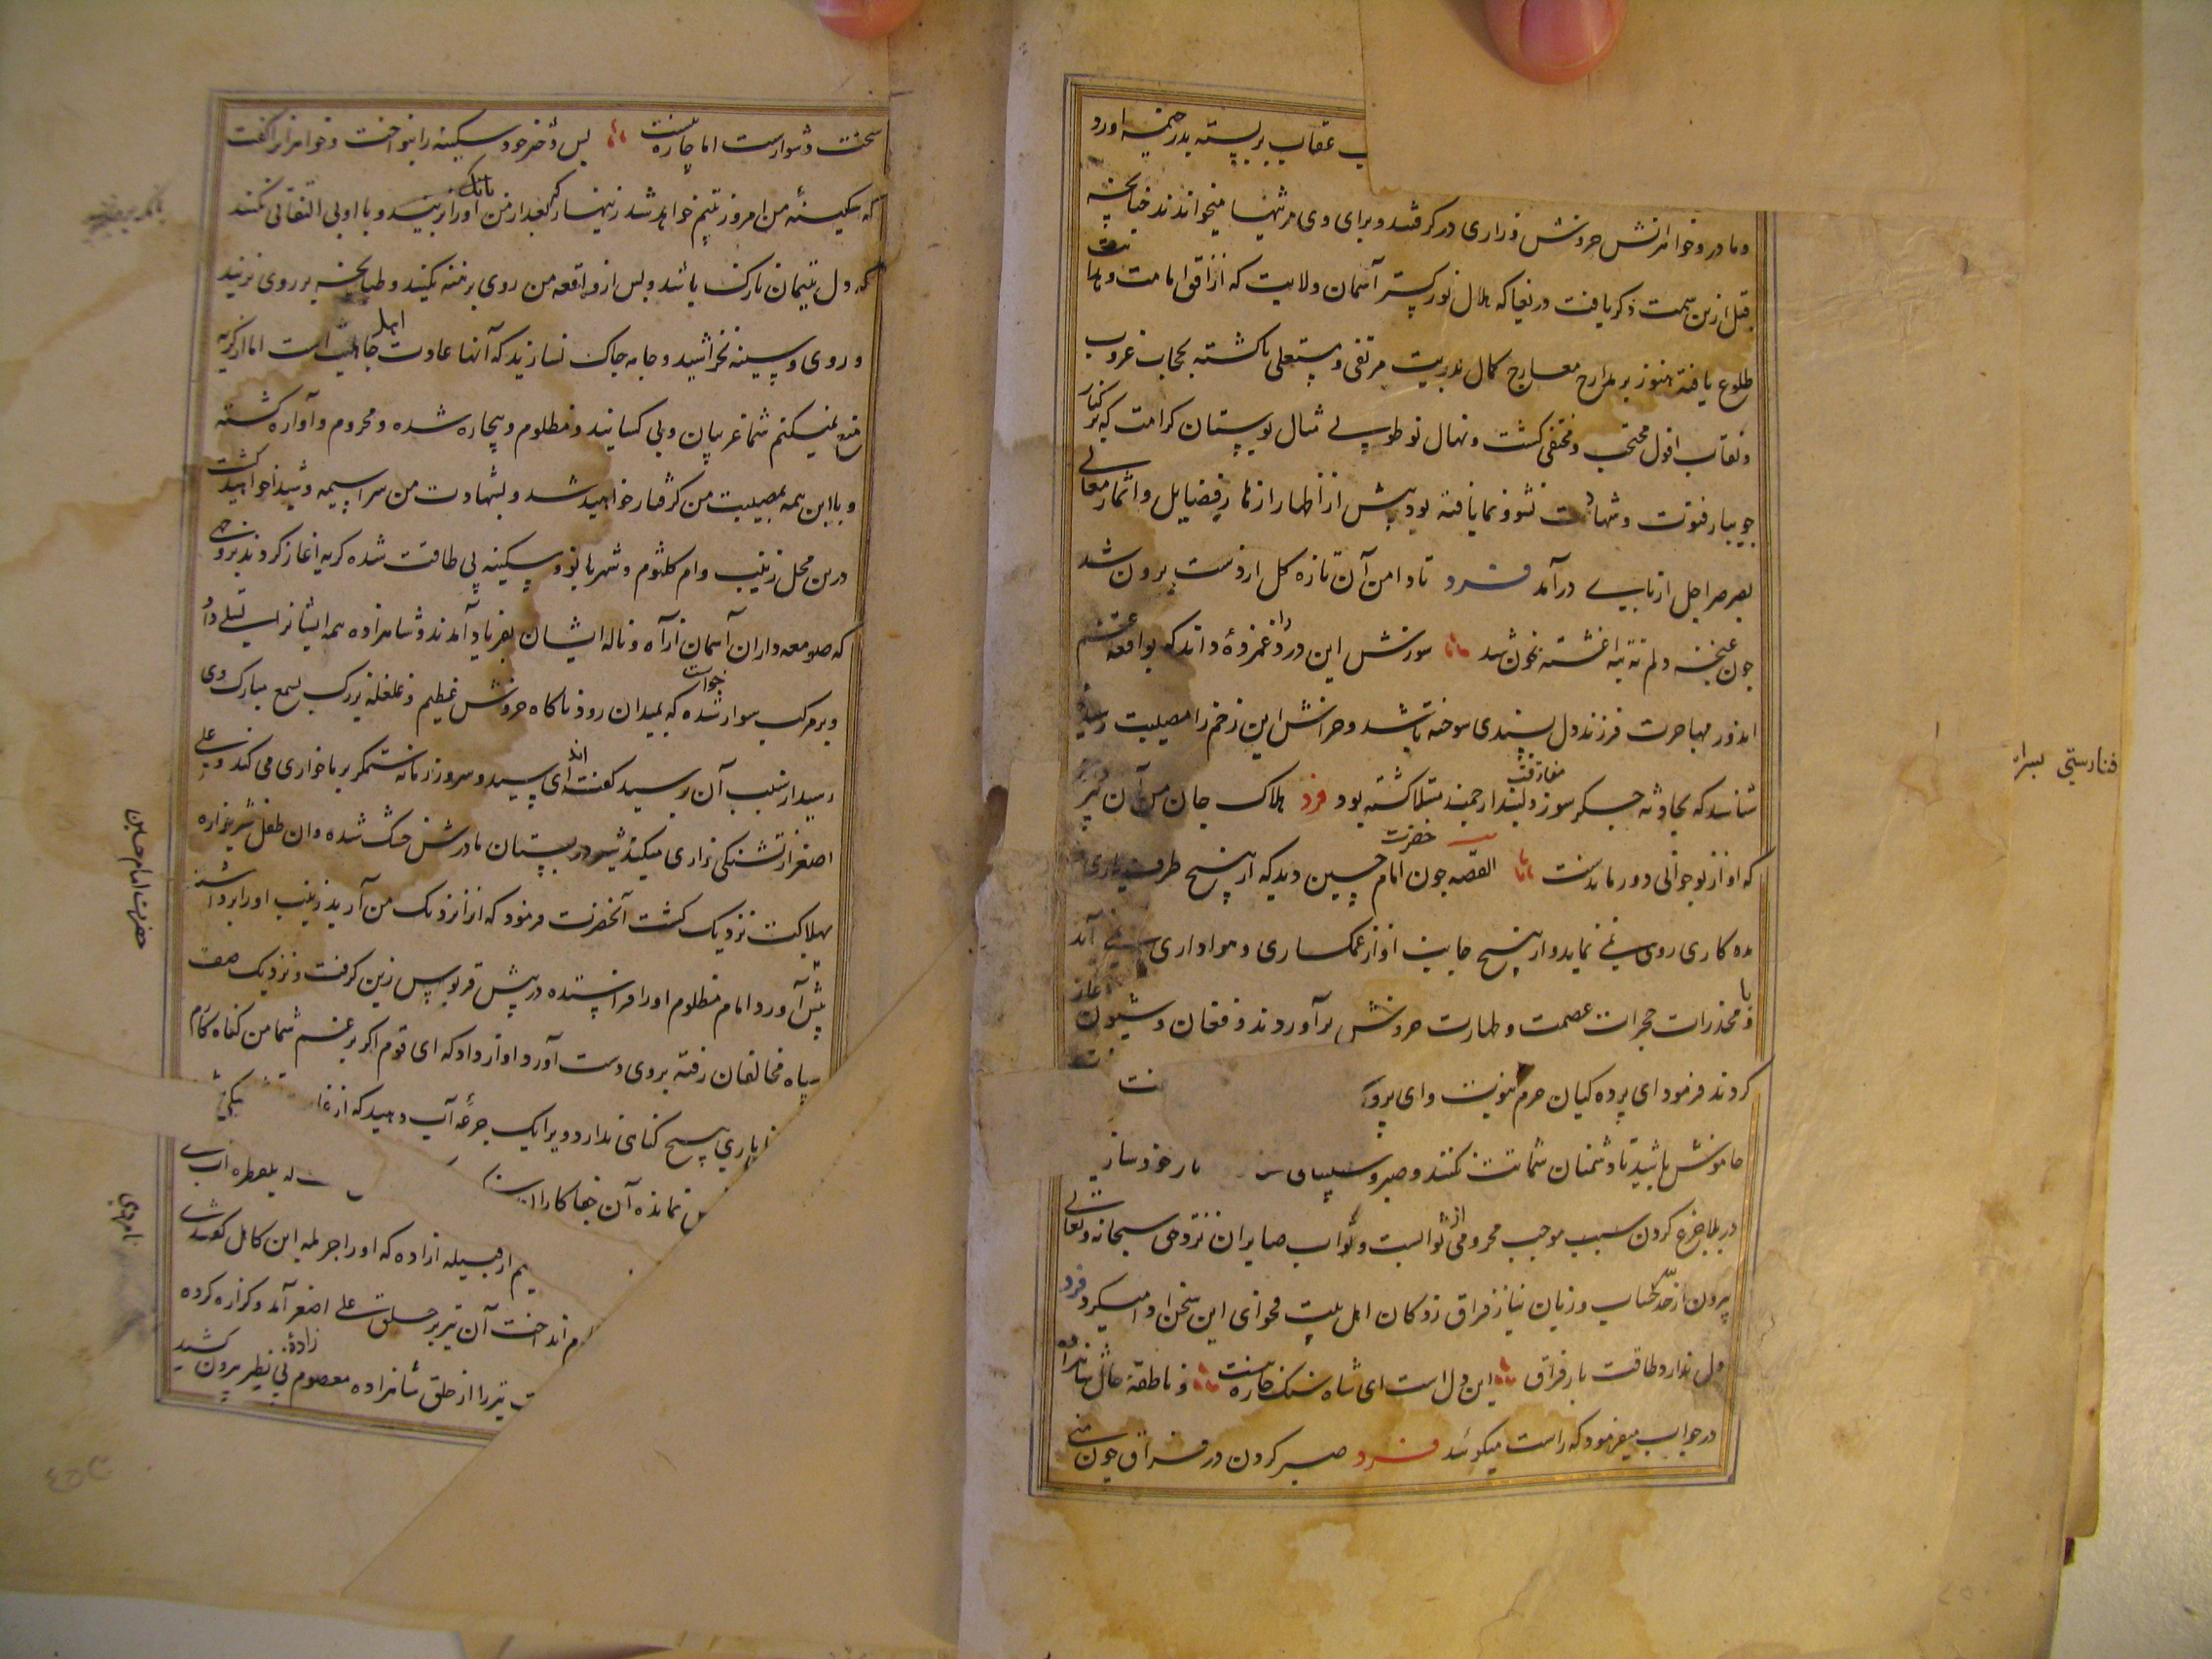 عقاب بر بسته بدر خیمه اورد
و مادر و خواهرانش خروش و زاری در گرفتند و برای وی مرثیها میخواندند چنانچه
قبل ازین سمت ذکر یافت دریغا که هلال نور کستر آسمان ولایت که از افق امامت
طلوع یافته هنوز بر مدارج معارج کمال بدریت مرتقی و مستعلی ناکشته بحجاب غروب
و نقاب افول محتجب و مختفی کشت و نهال نو طوبی مثال بوستان کرامت که بر کنار
جویبار فتوت و شهادت نشو و نما یافته بود پیش از اظهار ازهار فضایل و اثمار معالی
بصرصر اجل از پای در آمد فرد تا دامن آن تازه کل از دست برون شد
چون غنچه دلم ته بته اغشته بخون شد سوزش این درد را غمزدهٔ داند که بواقعه
مهاجرت فرزند دل بندی سوخته باشد و خراش این زخم را مصیبت
شناسد که بحادثه جکر سوز مفارقت دلبند ارجمند مبتلا کشته بود فرد هلاک جان من آن پیر
که او از نوجوانی دور ماندست القصه چون حضرت امام حسین دید که از هیچ طرف یاری
مدد کاری روی نمی نماید و از هیچ جانب اواز غمکساری و هواداری نمی آید
و مخدرات حجرات عصمت و طهارت خروش بر آوردند و فغان و شیون
کردند فرمود ای پرده کیان حرم نبوت و ای
خاموش باشید تا دشمنان شماتت نکنند و صبر و خود سازید
در بلا جزع کردن سبب موجب محرومی از ثوابست و ثواب صابران نزد حق سبحانه و تعالی
بیرون از حد حساب و زبان نیاز فراق زدکان اهل بیت فحوای این سخن ادا میکرد فرد
دل ندارد طاقت بار فراق این دل است ای شاه سنک خاره نیست و ناطقه حال شاهزاده
در جواب میفرمود که راست میکوئید فرد صبر کردن در فراق چون منی
سخت دشوارست اما چاره نیست پس دختر خود سکینه را بنواخت و خواهرانرا کفت
که سکینهٔ من امروز یتیم خواهد شد زینهار که بعد از من بانک او را نزنید و با او بی التفاتی نکنید
که دل یتیمان نازک باشد و پس از واقعه من روی برهنه نکنید و طپانچه بر روی نزنید
و روی و سینه نخراشید و جامه چاک نسازید که آنها عادت اهل جاهلیت است اما از کریه
منع نمیکنم شما غریبان و بی کسانید و مظلوم و بیچاره شده و محروم و آواره کشته
و با این همه بمصیبت من کرفتار خواهید شد و بشهادت من سراسیمه و شیدا خواهید کشت
درین محل زینب و ام کلثوم و شهربانو و سکینه بی طاقت شده کریه اغاز کردند بروجهی
که صومعه داران آسمان از آه و ناله ایشان بفریاد آمدند و شاهزاده همه ایشانرا تسلی داد
و بر مرکب سوار شده خواست که بمیدان رود ناکاه خروش عظیم و غلغلهٔ بزرک بسمع مبارک وی
رسید از سبب آن پرسید کفتند ای سید و سرور زمانه ستمکر بر ما خواری می کند و علی
اصغر از تشنکی زاری میکند شیر در پستان مادرش خشک شده و ان طفل شیرخواره
بهلاکت نزدیک کشت آنحضرت فرمود که او را نزدیک من آرید زینب او را برداشته
پیش آورد امام مظلوم او را فرا ستده در پیش قربوس زین کرفت و نزدیک صف
سپاه مخالفان رفته بروی دست آورد و اواز داد که ای قوم اکر بزعم شما من کناه کارم
باری هیچ کناهی ندارد ویرا یک جرعه آب دهید که از
نمانده آن جفا کاران بقطره اب
از قبیله ازاده که او را حرمله ابن کاهل کفتندی
انداخت آن تیر بر حلق علی اصغر آمد و کذاره کرده
تیر را از حلق شاهزاده معصوم بی نظیر بیرون کشید
حضرت امام حسین